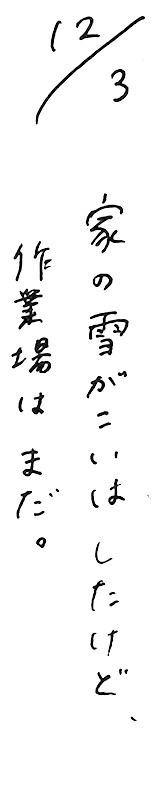 12/3
家の雪がこいはしたけど、
作業場はまだ。